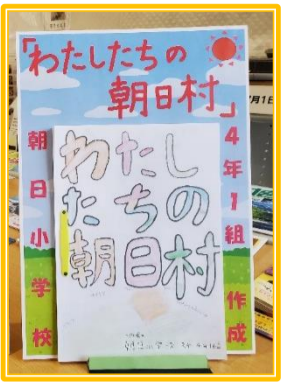 「わたしたちの
朝日村」
朝日小学校
4年1組 作成
わたし
たちの
朝日村
月1日